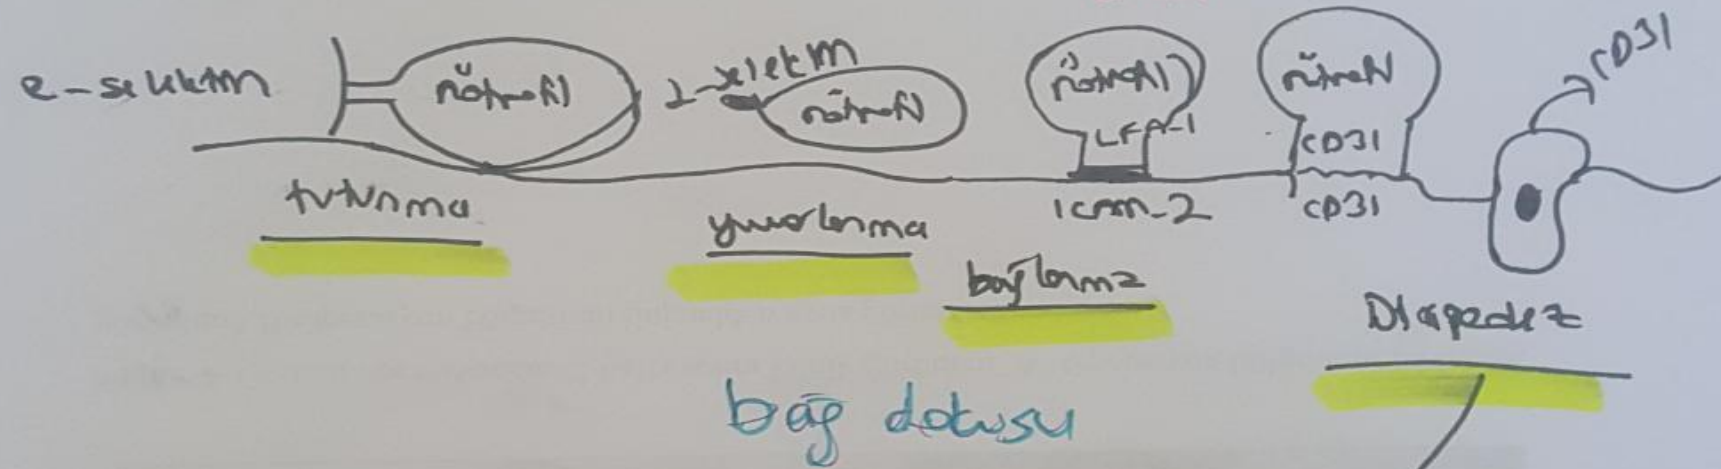 e-selektin
nötrofil
L-selektin
nötrofil
nötrofil
LFA-1
nötrofil
CD31
CD31
ICAM-2
CD31
tutunma
yuvarlanma
bağlanma
Diapedez
bağ dokusu